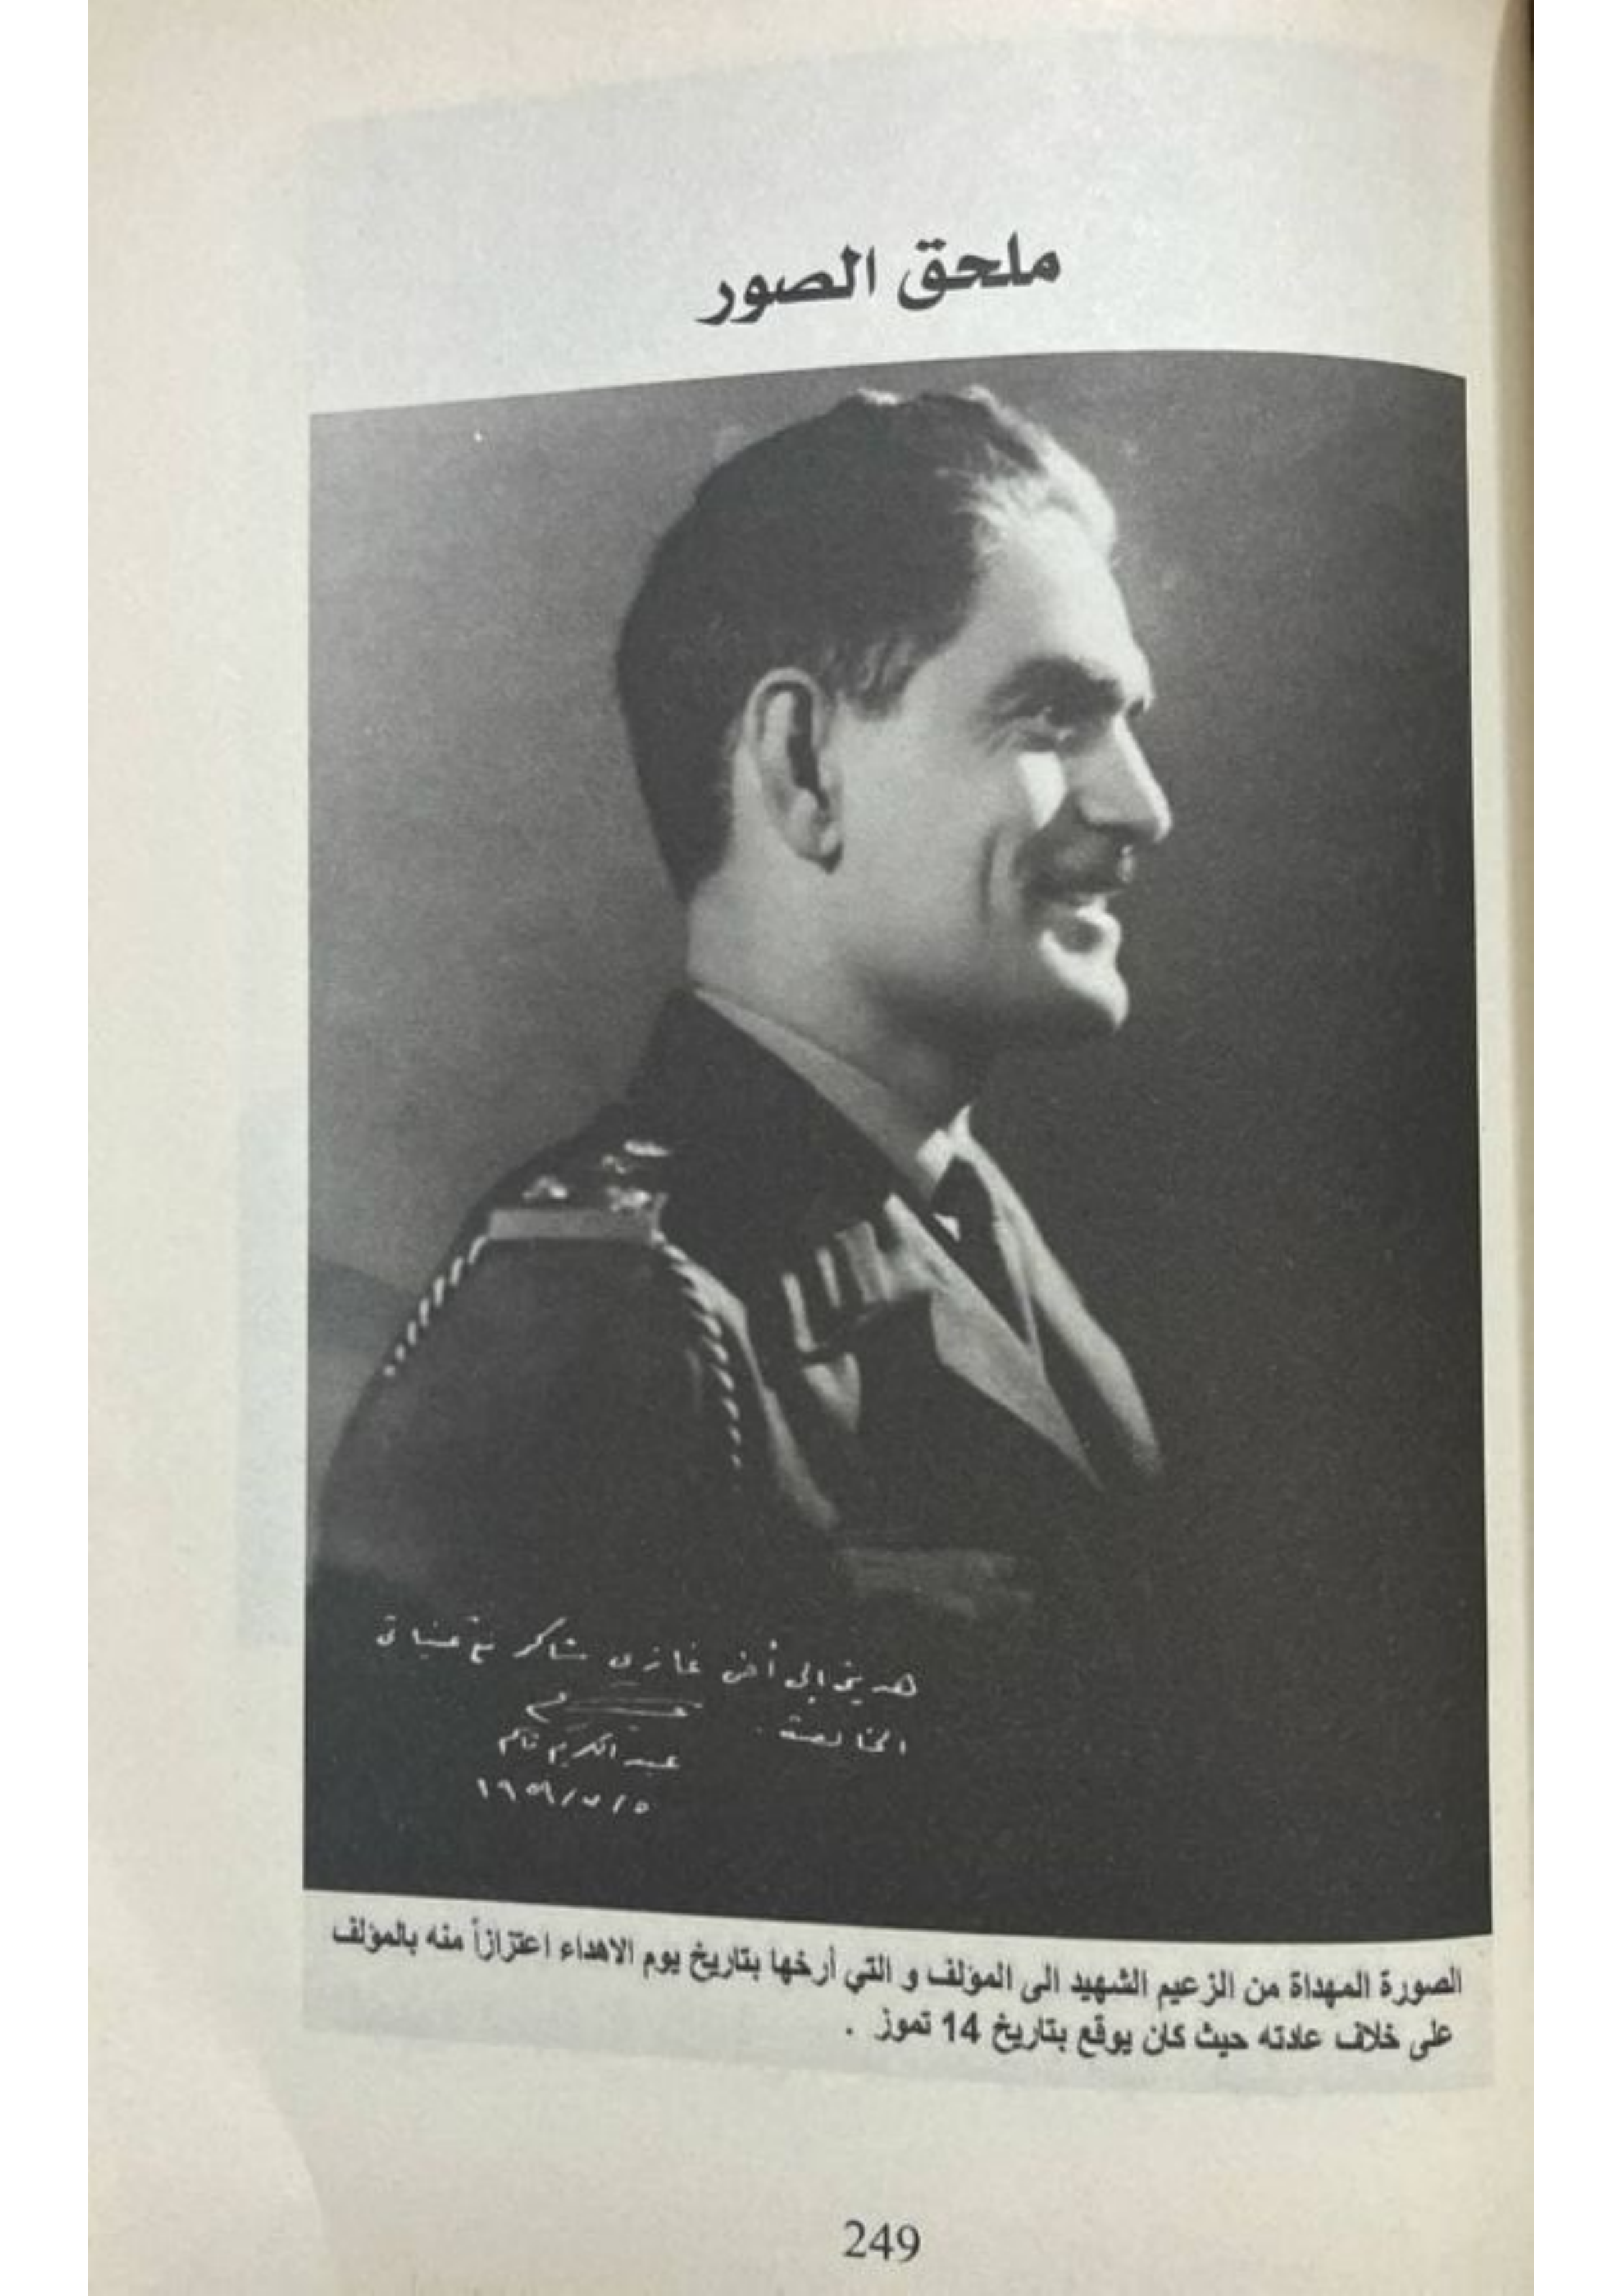 ملحق الصور
هديتي إلى أخي غازي شاكر مع تمنياتي
الخالصة .
عبد الكريم قاسم
الصورة المهداة من الزعيم الشهيد الى المؤلف و التي أرخها بتاريخ يوم الاهداء اعتزازاً منه بالمؤلف
على خلاف عادته حيث كان يوقع بتاريخ 14 تموز .
249